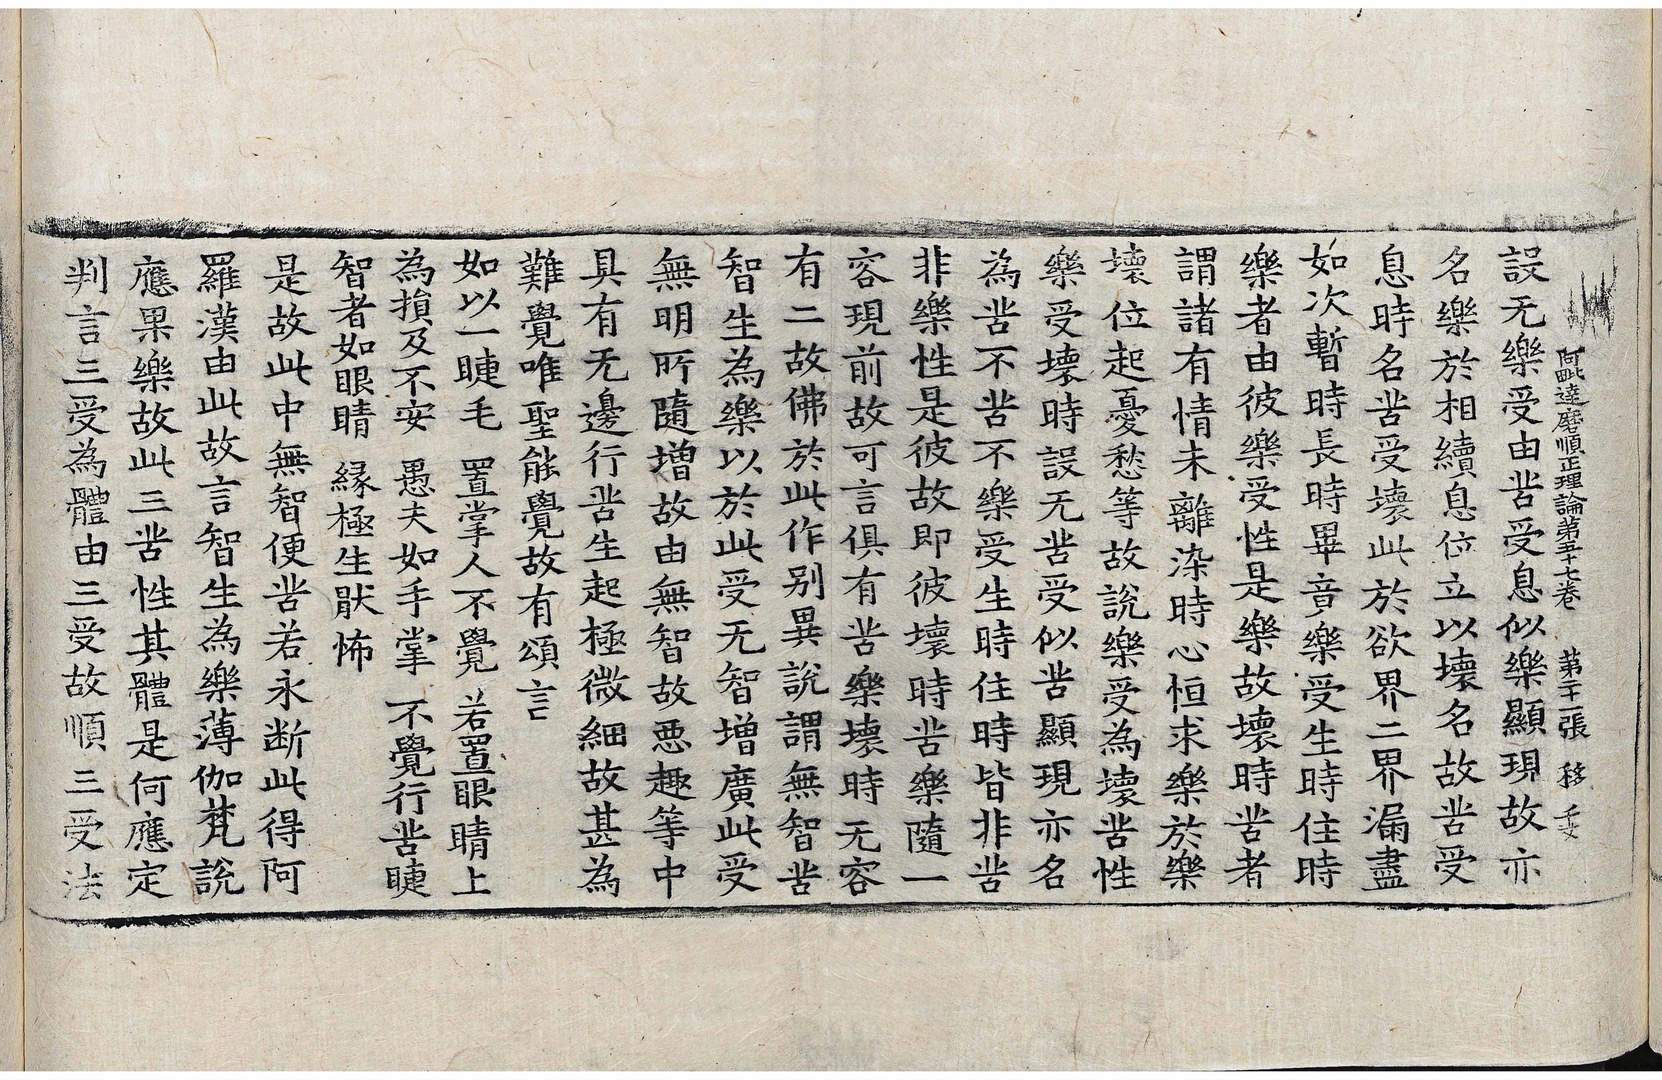 阿毗達磨順正理論第五十七卷　第二十一張　移
設无樂受由苦受息似樂顯現故亦
名樂於相續息位立以壞名故苦受
息時名苦受壞此於欲界二界漏盡
如次暫時長時畢音樂受生時住時
樂者由彼樂受性是樂故壞時苦者
謂諸有情未離染時心恒求樂於樂
壞位起憂愁等故說樂受為壞苦性
樂受壞時設无苦受似苦顯現亦名
為苦不苦不樂受生時住時皆非苦
非樂性是彼故即彼壞時苦樂隨一
容現前故可言俱有苦樂壞時无容
有二故佛於此作别異說謂無智苦
智生為樂以於此受无智增廣此受
無明所隨增故由無智故惡趣等中
具有无邊行苦生起極微細故甚為
難覺唯聖能覺故有頌言
如以一睫毛　置掌人不覺　若置眼睛上
為損及不安　愚夫如手掌　不覺行苦睫
智者如眼睛　緣極生猒怖
是故此中無智便苦若永断此得阿
羅漢由此故言智生為樂薄伽梵說
應果樂故此三苦性其體是何應定
判言三受為體由三受故順三受法